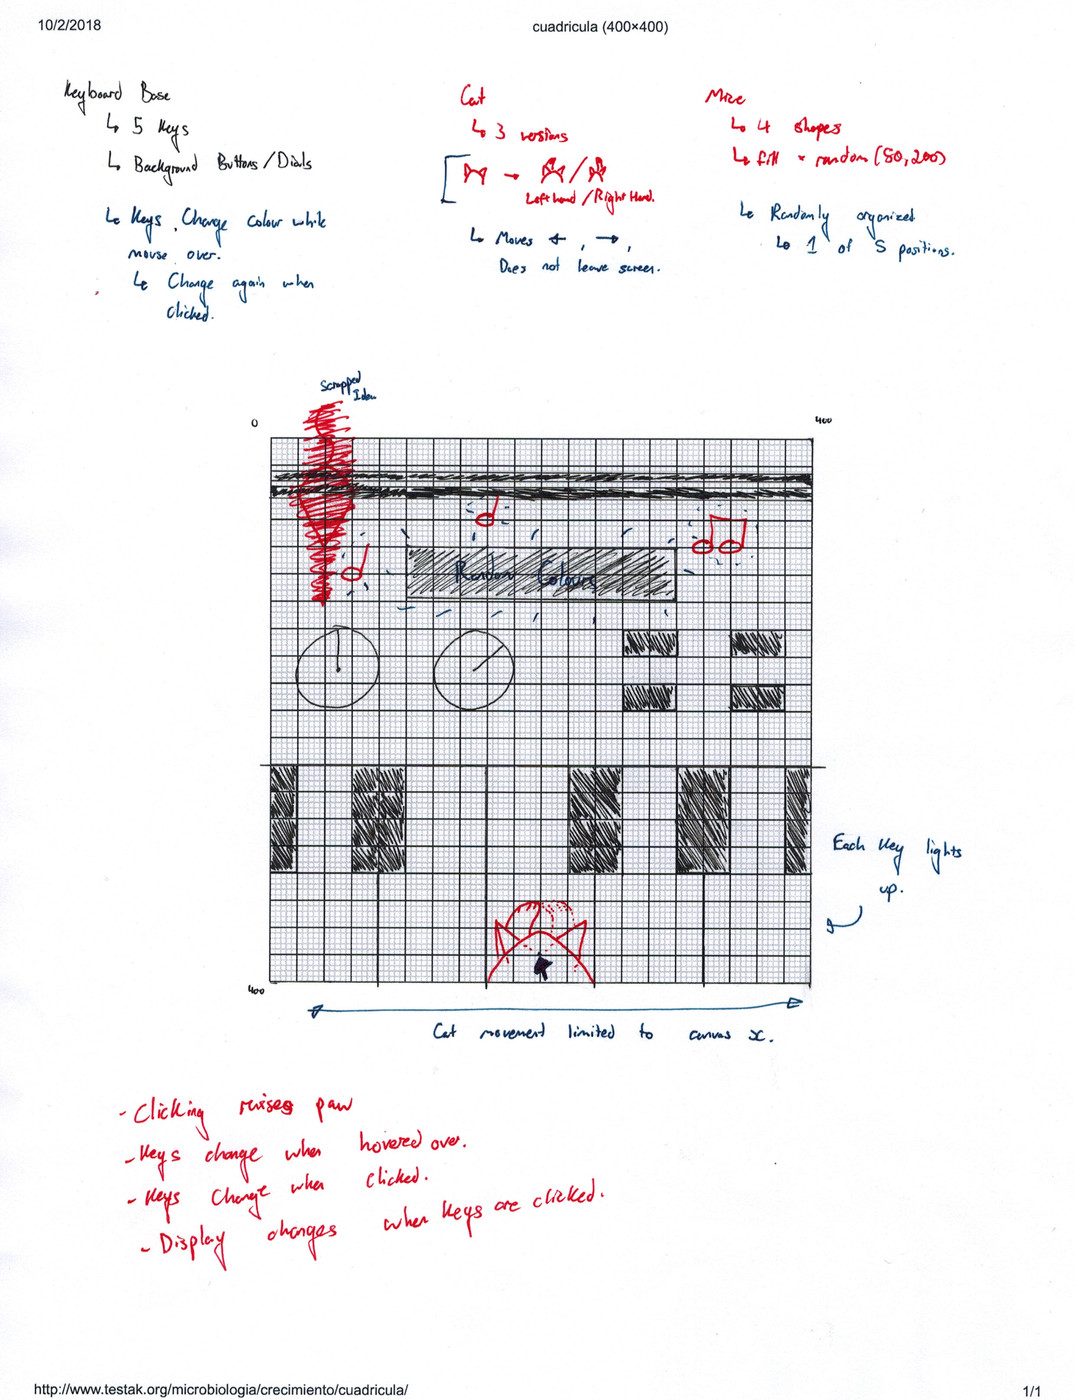 10/2/2018
cuadricula (400×400)
Keyboard Base
↳ 5 Keys
↳ Background Buttons/Dials
↳ Keys Change Colour while
mouse over.
↳ Change again when
clicked.
Cat
↳ 3 versions
Left hand / Right Hand.
↳ Moves ←, →,
Does not leave screen.
Mice
↳ 4 shapes
↳ fill * random (80, 200)
↳ Randomly organized
↳ 1 of 5 positions.
Scrapped
Idea
0
400
Random Colours
Each Key lights
up.
400
Cat movement limited to canvas x.
- Clicking raises paw
- Keys change when hovered over.
- Keys change when clicked.
- Display changes when Keys are clicked.
http://www.testak.org/microbiologia/crecimiento/cuadricula/
1/1